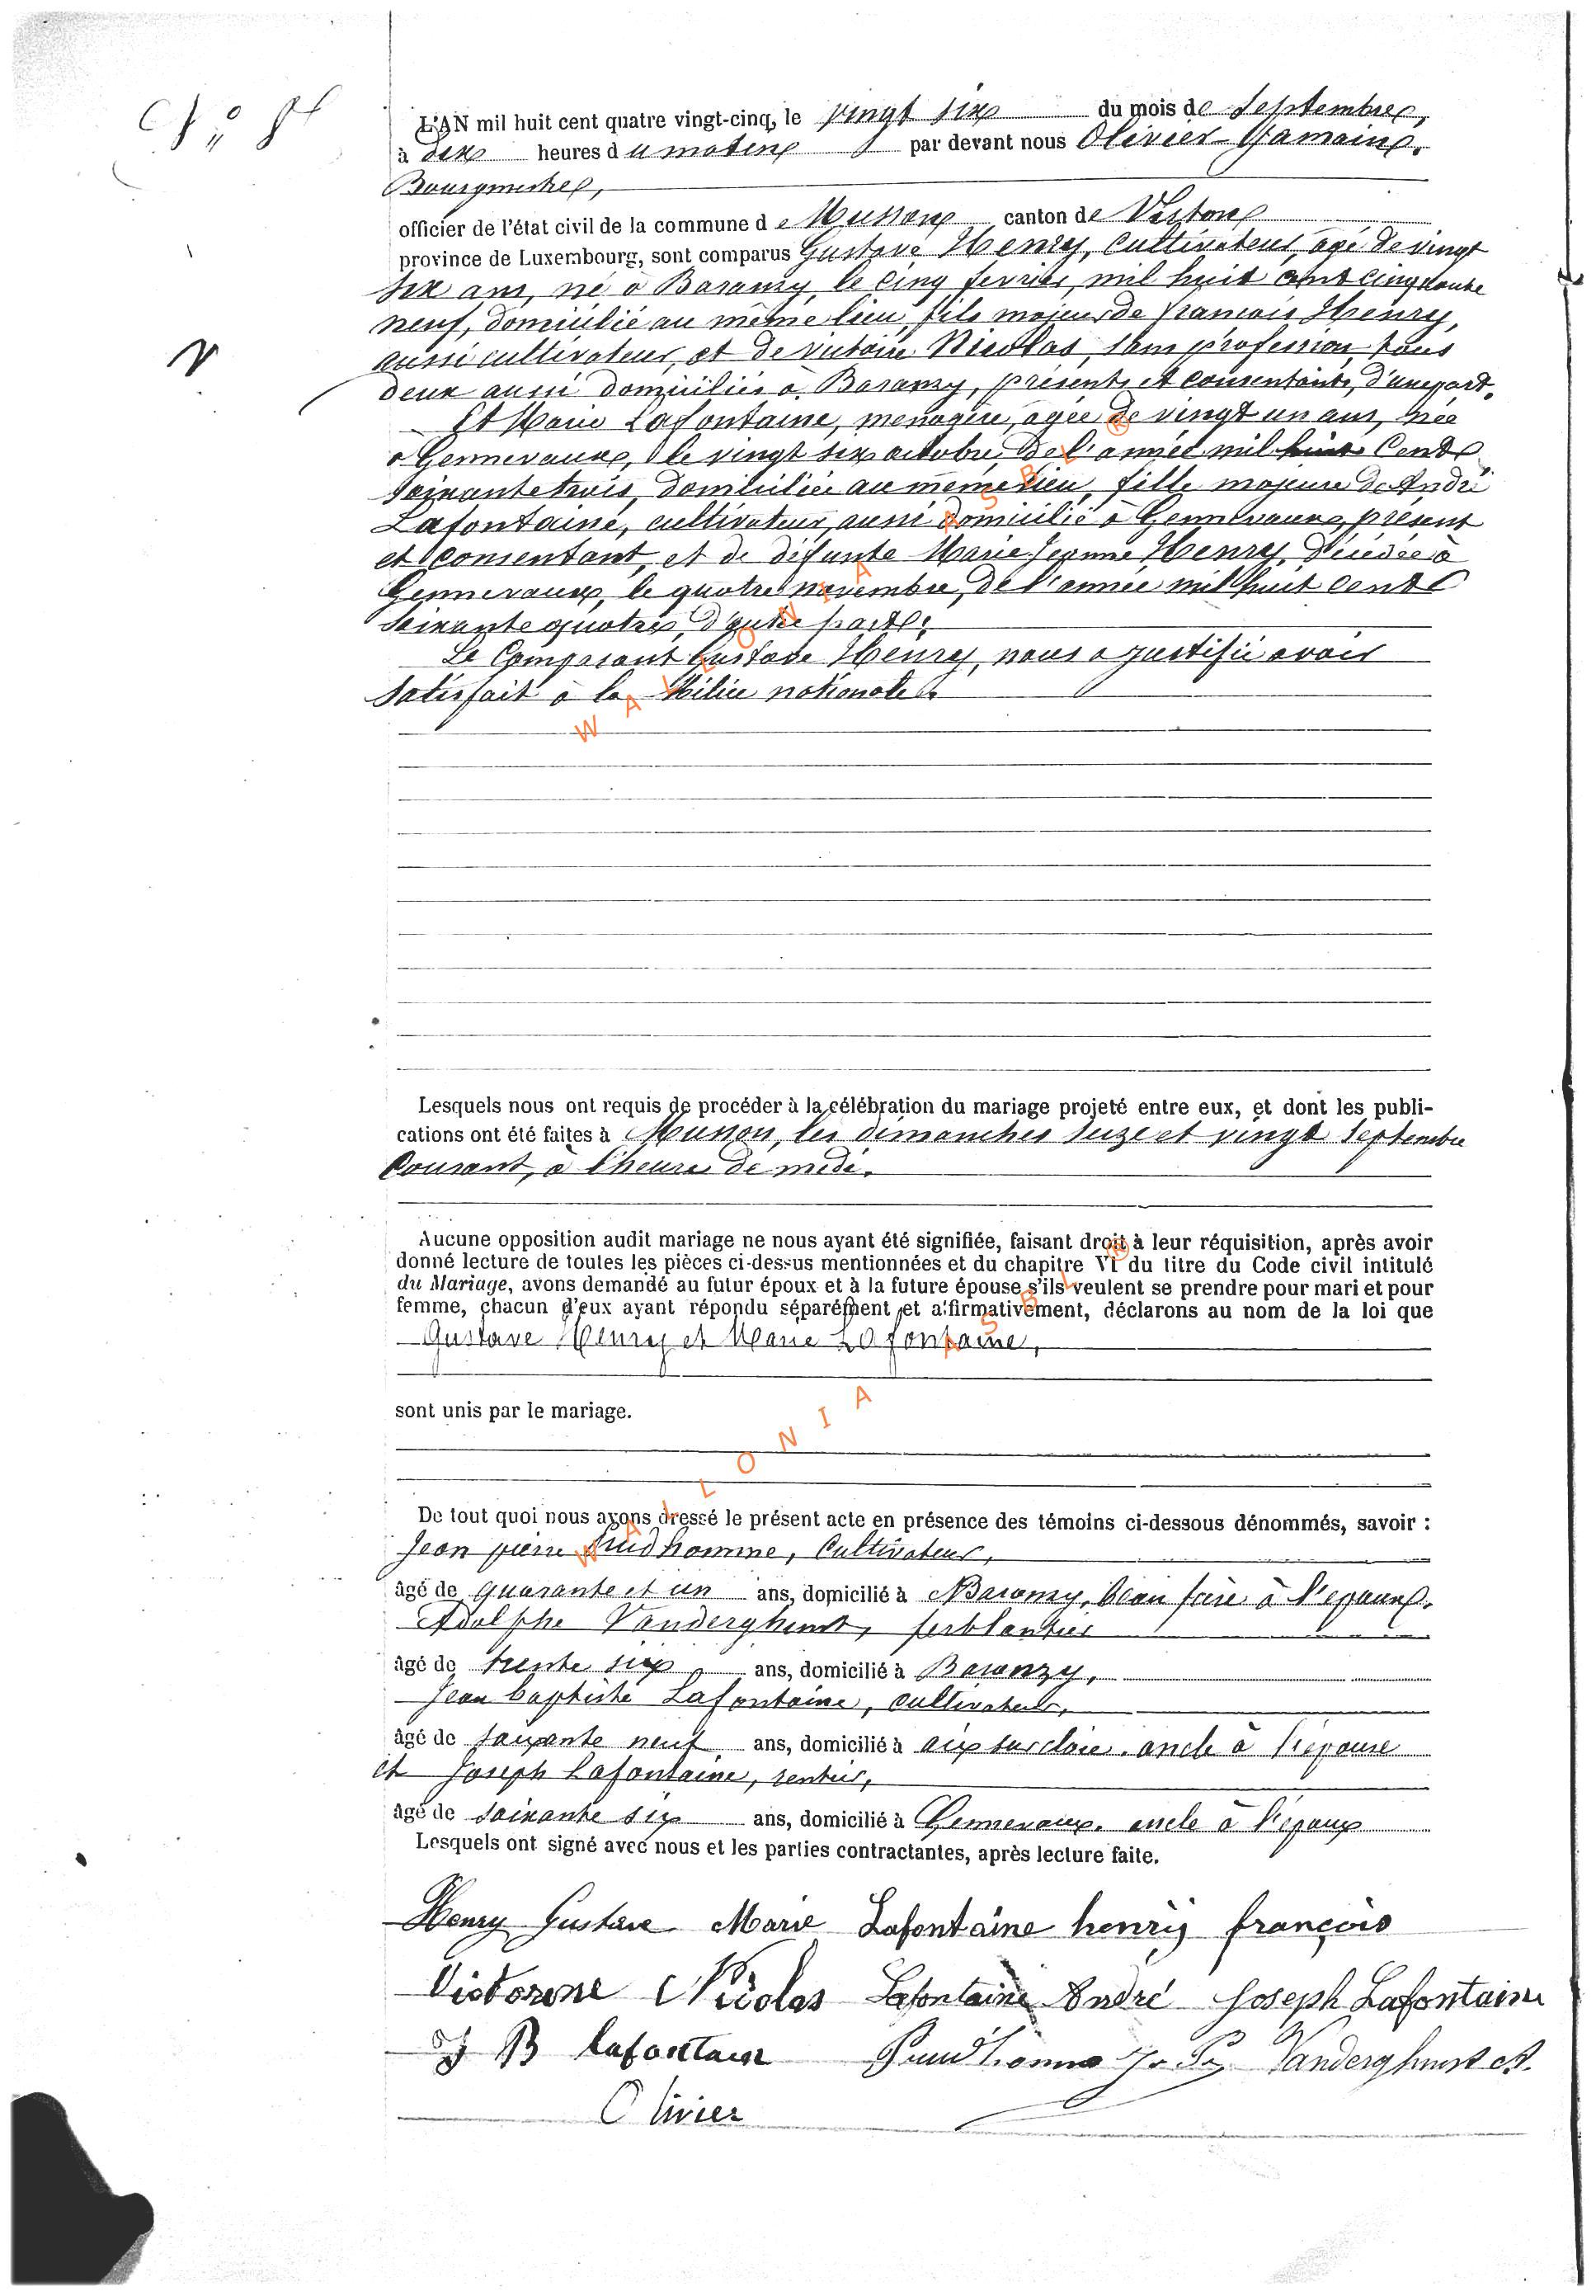 N° 8
L'AN mil huit cent quatre vingt-cinq, le vingt six du mois de Septembre,
à dix heures du matin par devant nous Olivier Gamain,
Bourgmestre,
officier de l'état civil de la commune de Musson canton de Virton
province de Luxembourg, sont comparus Gustave Henry, cultivateur, agé de vingt
six ans, né à Baranzy, le cinq fevrier, mil huit cent cinquante
neuf, domicilié au même lieu, fils majeur de francois Henry,
aussi cultivateur, et de victoire Nicolas, sans profession, tous
deux aussi domiciliés à Baranzy, présents et consentants, d'une part.
Et Marie Lafontaine, menagère, agée de vingt un ans, née
à Gennevaux, le vingt six octobre, de l'année mil huit cent
soixante trois, domiciliée au même lieu, fille majeure de André
Lafontaine, cultivateur, aussi domicilié à Gennevaux, présent
et consentant, et de défunte Marie Jeanne Henry, décédée à
Gennevaux, le quatre novembre, de l'année mil huit cent
soixante quatre, d'autre part.
Le Comparant Gustave Henry, nous a justifié avoir
satisfait à la Milice nationale.
Lesquels nous ont requis de procéder à la célébration du mariage projeté entre eux, et dont les publi-
cations ont été faites à Musson, les dimanches treize et vingt Septembre
Courant, à l'heure de midi.
Aucune opposition audit mariage ne nous ayant été signifiée, faisant droit à leur réquisition, après avoir
donné lecture de toutes les pièces ci-dessus mentionnées et du chapitre VI du titre du Code civil intitulé
du Mariage, avons demandé au futur époux et à la future épouse s'ils veulent se prendre pour mari et pour
femme, chacun d'eux ayant répondu séparément et affirmativement, déclarons au nom de la loi que
Gustave Henry et Marie Lafontaine,
sont unis par le mariage.
De tout quoi nous avons dressé le présent acte en présence des témoins ci-dessous dénommés, savoir :
Jean pierre Prudhomme, Cultivateur,
âgé de quarante et un ans, domicilié à Baranzy, beau frère à l'epoux.
Adolphe Vanderghinst, ferblantier
âgé de trente six ans, domicilié à Baranzy,
Jean baptiste Lafontaine, cultivateur,
âgé de soixante neuf ans, domicilié à aix sur cloie, oncle à l'épouse
et Joseph Lafontaine, rentier,
âgé de soixante six ans, domicilié à Gennevaux, oncle à l'epoux
Lesquels ont signé avec nous et les parties contractantes, après lecture faite.
Henry Gustave Marie Lafontaine henry françois
Victorine Nicolas Lafontaine André Joseph Lafontaine
J B Lafontaine Prudhomme J. P. Vanderghinst A.
Olivier
WALLONIA ASBL ®
WALLONIA ASBL ®